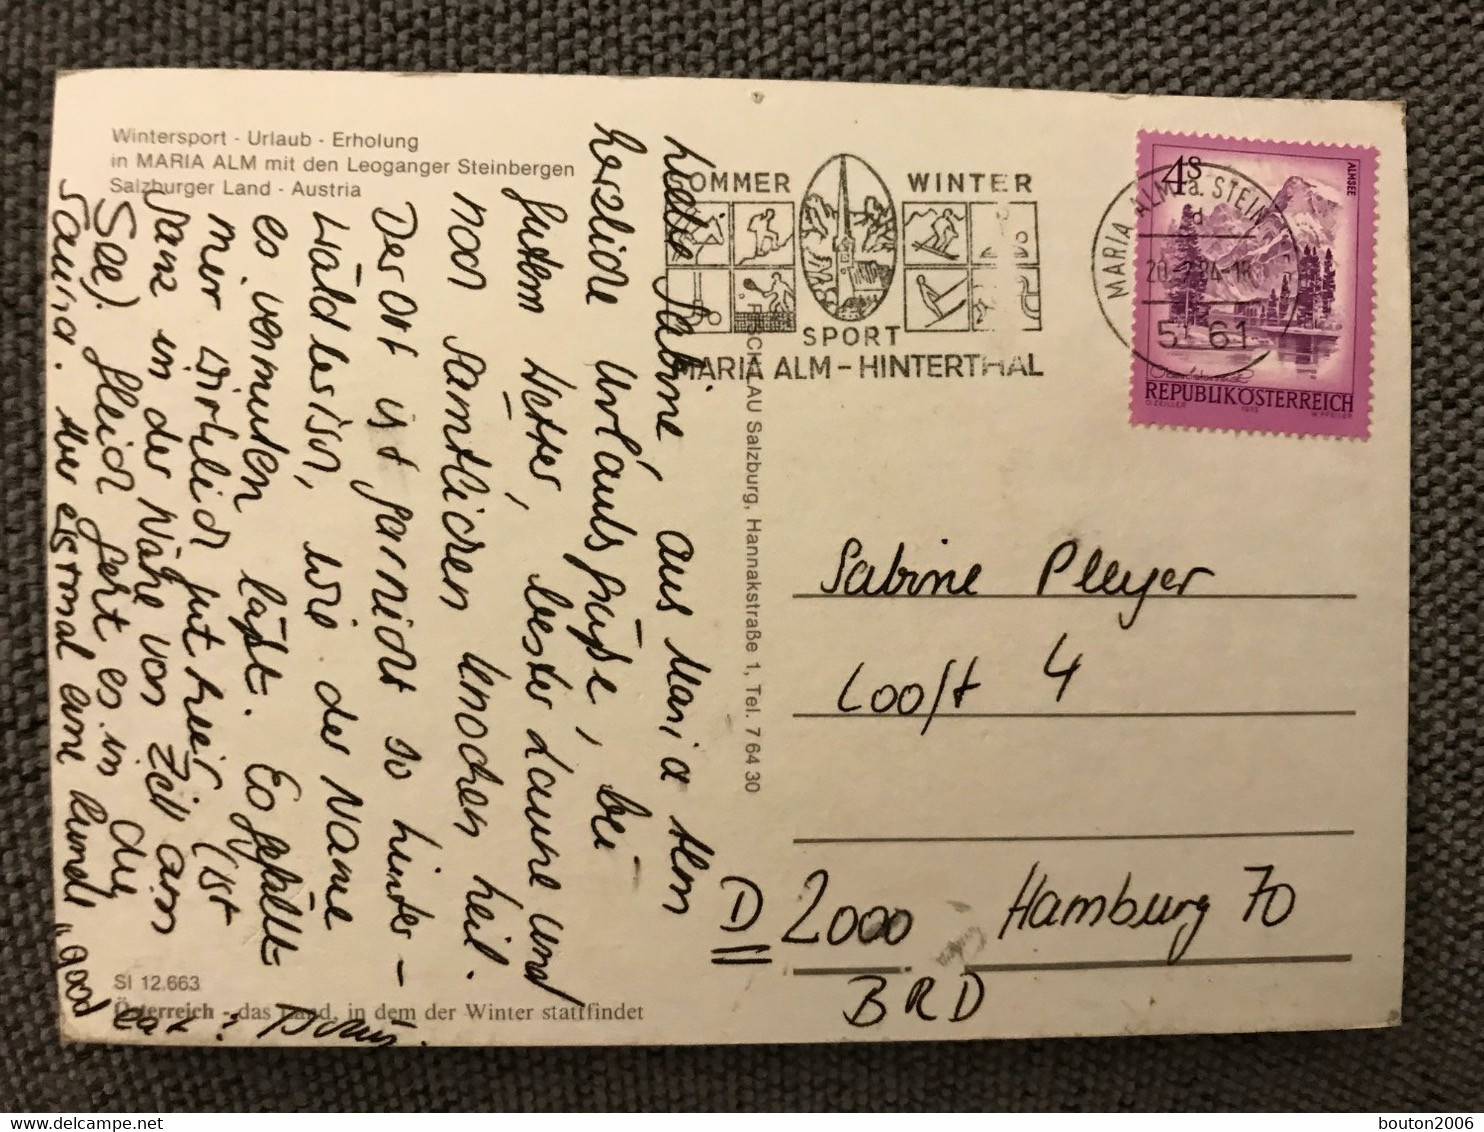 Wintersport - Urlaub - Erholung
in MARIA ALM mit den Leoganger Steinbergen
Salzburger Land - Austria
Liebe Sabine, aus Maria Alm
herzliche Urlaubsgrüße, bei
gutem Wetter, bester Laune und
noch sämtlichen Knochen heil.
Der Ort ist garnicht so hinter-
wäldlerisch, wie der Name
es vermuten läßt. Es gefällt
mir wirklich gut hier (ist
ganz in der Nähe von Zell am
See). Gleich geht es in die
Sauna. Aber erstmal eine Runde "Good
SI 12.663
Österreich - das Land, in dem der Winter stattfindet
RISCHLAU Salzburg, Hannakstraße 1, Tel. 7 64 30
SOMMER WINTER
SPORT
MARIA ALM - HINTERTHAL
MARIA ALM a. STEIN
5 61
4 S
ALMSEE
REPUBLIK ÖSTERREICH
O. ZEILER 1973
Sabine Pleyer
Looft 4
D 2000 Hamburg 70
BRD
delcampe.net
bouton2006